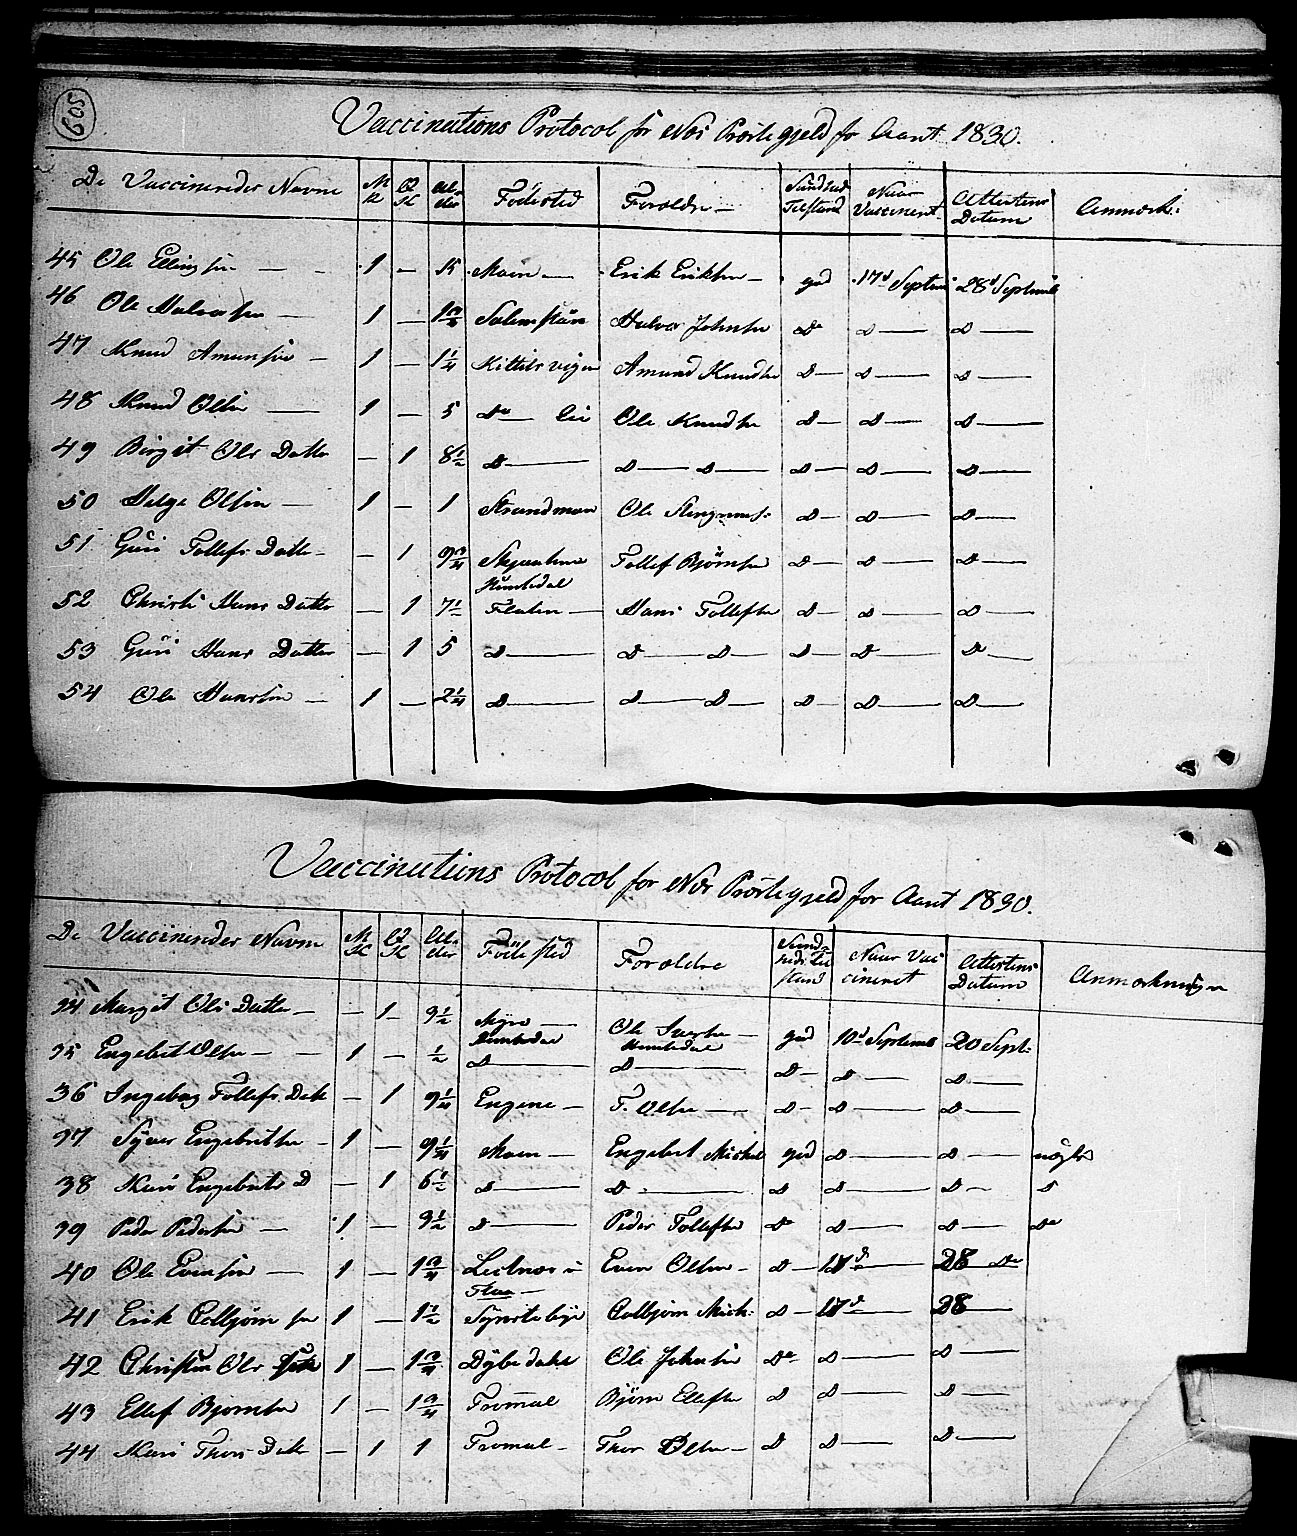 605
Vaccinations Protocol for Næs Præstegjeld for Aaret 1830.
De Vaccineredes Navne | M K | Q K | Al- der | Födested | Foroldre | Sundheds Tilstand | Naar Vaccineret | Attestens Datum | Anmærk:
45 Ole Ellingsen — | 1 | — | 15 | Moen — | Erik Eriksen — | god | 17d Septem | 28d Septemb
46 Ole Halvorsen — | 1 | — | 1 3/4 | | Halvor Johnsen | Do | D — | D —
47 Knud Amunsen — | 1 | — | 1 1/4 | Kittilsvigen | Amund Knudsen | D — | D — | D —
48 Knud Olsen — | 1 | — | 5 | Do — Lie | Ole Knudsen | D — | D — | D —
49 Birgit Ols Datter | — | 1 | 8 1/2 | D — | D — D — | D — | D — | D —
50 Helge Olsen — | 1 | — | 1 | Strandmoen | Ole | D — | D — | D —
51 Guri Tollefs Datter | — | 1 | 9 3/4 | | Tollef Björnsen | D — | D — | D —
Hemsedal
52 Christi Hans Datter | — | 1 | 7 1/2 | Flaten — | Hans Tollefsen | D — | D — | D —
53 Guri Hans Datter | — | 1 | 5 | D — | D — D — | D — | D — | Do —
54 Ole Hansen — | 1 | — | 2 1/4 | D — | D — D — | D — | D — | D —
Vaccinations Protocol for Næs Præstegjeld for Aaret 1830.
De Vaccineredes Navne | M K | Q K | Al- der | Födested | Foroldre | Sund- heds til stand | Naar Vac cineret | Attestens Datum | Anmærkninger
34 Margit Ols Datter — | — | 1 | 9 1/2 | Myre — | Ole — | god | 10d Septemb | 20 Sept:
Hemsedal | Hemsedal
35 Engebret Olsen — | 1 | — | 1/2 | D — | D — | D — | D — | D —
36 Ingeborg Tollefs Datt | — | 1 | 9 1/4 | Engene — | T. Olsen — | D — | D — | D —
37 Syver Engebretsen — | 1 | — | 9 1/4 | Moen — | Engebret Mickel | god | D — | D —
38 Kari Engebrets D | — | 1 | 6 1/2 | D — | D — | D | D — | D — | D
39 Peder Pedersen — | 1 | — | 9 1/2 | D — | Peder Tollefsen | Do | D — | D — | Do
40 Ole Evensen — | 1 | — | 1 3/4 | | Even Olsen — | D — | 17d — | 28 Do
41 Erik Colbjörnsen | 1 | — | 1 1/2 | | Colbjörn Mick: | D — | 17d — | 28 —
42 Christian Ols | 1 | — | 1 3/4 | | Ole Johnsen | Do | D — | D —
43 Ellef Bjørnsen | 1 | — | 1 3/4 | Tromal | Bjørn Ellefsen | D | D — | D —
44 Kari Thors Datt | — | 1 | 1 | Tromal — | Thor Olsen — | D | D — | D —